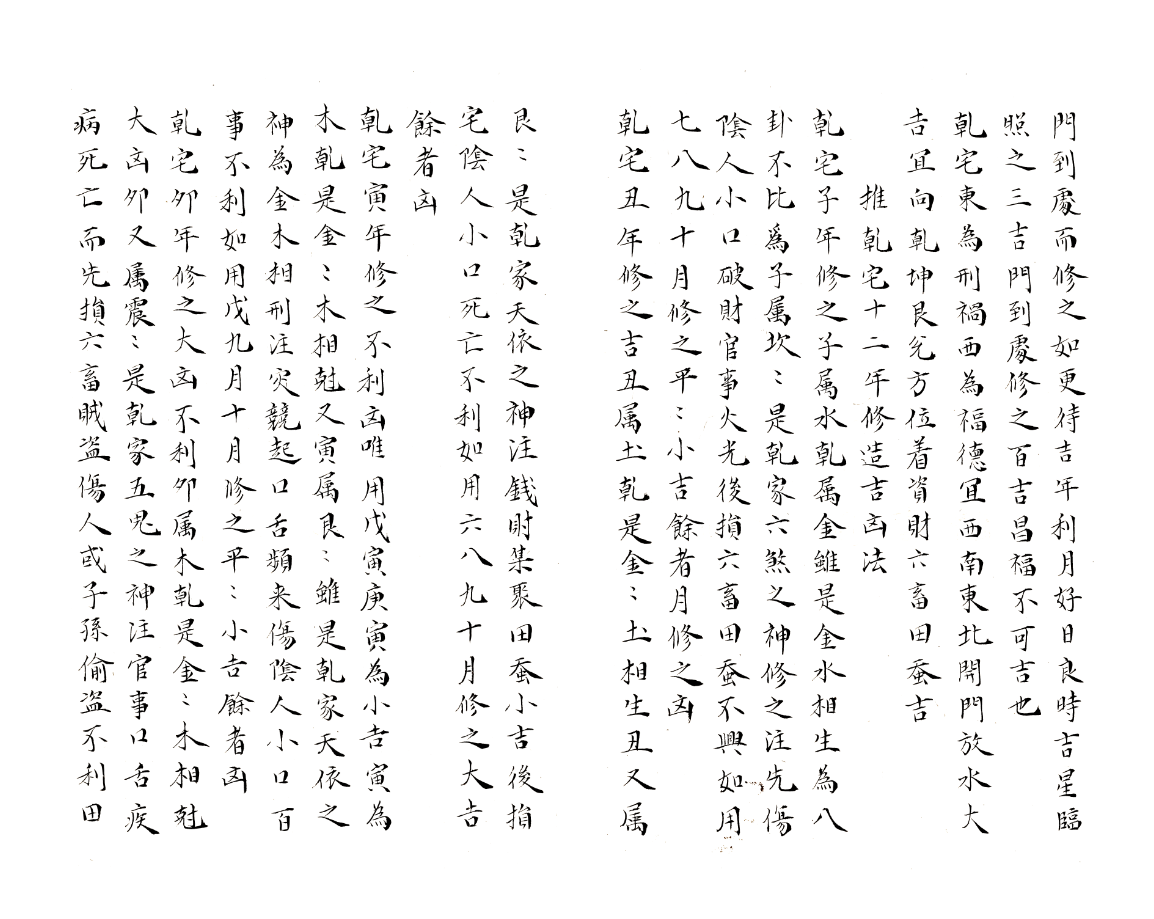 門到處而修之如更待吉年利月好日良時吉星臨
照之三吉門到處修之百吉昌福不可吉也
乾宅東為刑禍西為福德宜西南東北開門放水大
吉宜向乾坤艮兌方位着資財六畜田蚕吉
推乾宅十二年修造吉凶法
乾宅子年修之子属水乾属金雖是金水相生為八
卦不比爲子属坎〻是乾家六煞之神修之注先傷
陰人小口破財官事火光後損六畜田蚕不興如用
七八九十月修之平〻小吉餘者月修之凶
乾宅丑年修之吉丑属土乾是金〻土相生丑又属
艮〻是乾家天依之神注錢財集聚田蚕小吉後損
宅陰人小口死亡不利如用六八九十月修之大吉
餘者凶
乾宅寅年修之不利凶唯用戊寅庚寅為小吉寅為
木乾是金〻木相尅又寅属艮〻雖是乾家天依之
神為金木相刑注灾競起口舌頻来傷陰人小口百
事不利如用戊九月十月修之平〻小吉餘者凶
乾宅卯年修之大凶不利卯属木乾是金〻木相尅
大凶卯又属震〻是乾家五鬼之神注官事口舌疾
病死亡而先損六畜賊盗傷人或子孫偷盗不利田